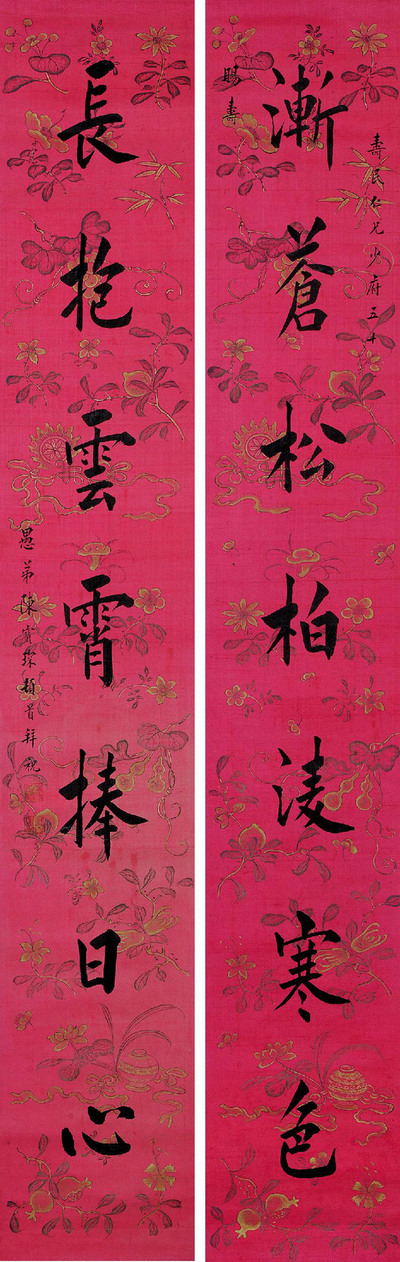 壽民仁兄少府五十
賜壽
漸蒼松柏淩寒色
長抱雲霄捧日心
愚弟陳寶琛頓首拜祝